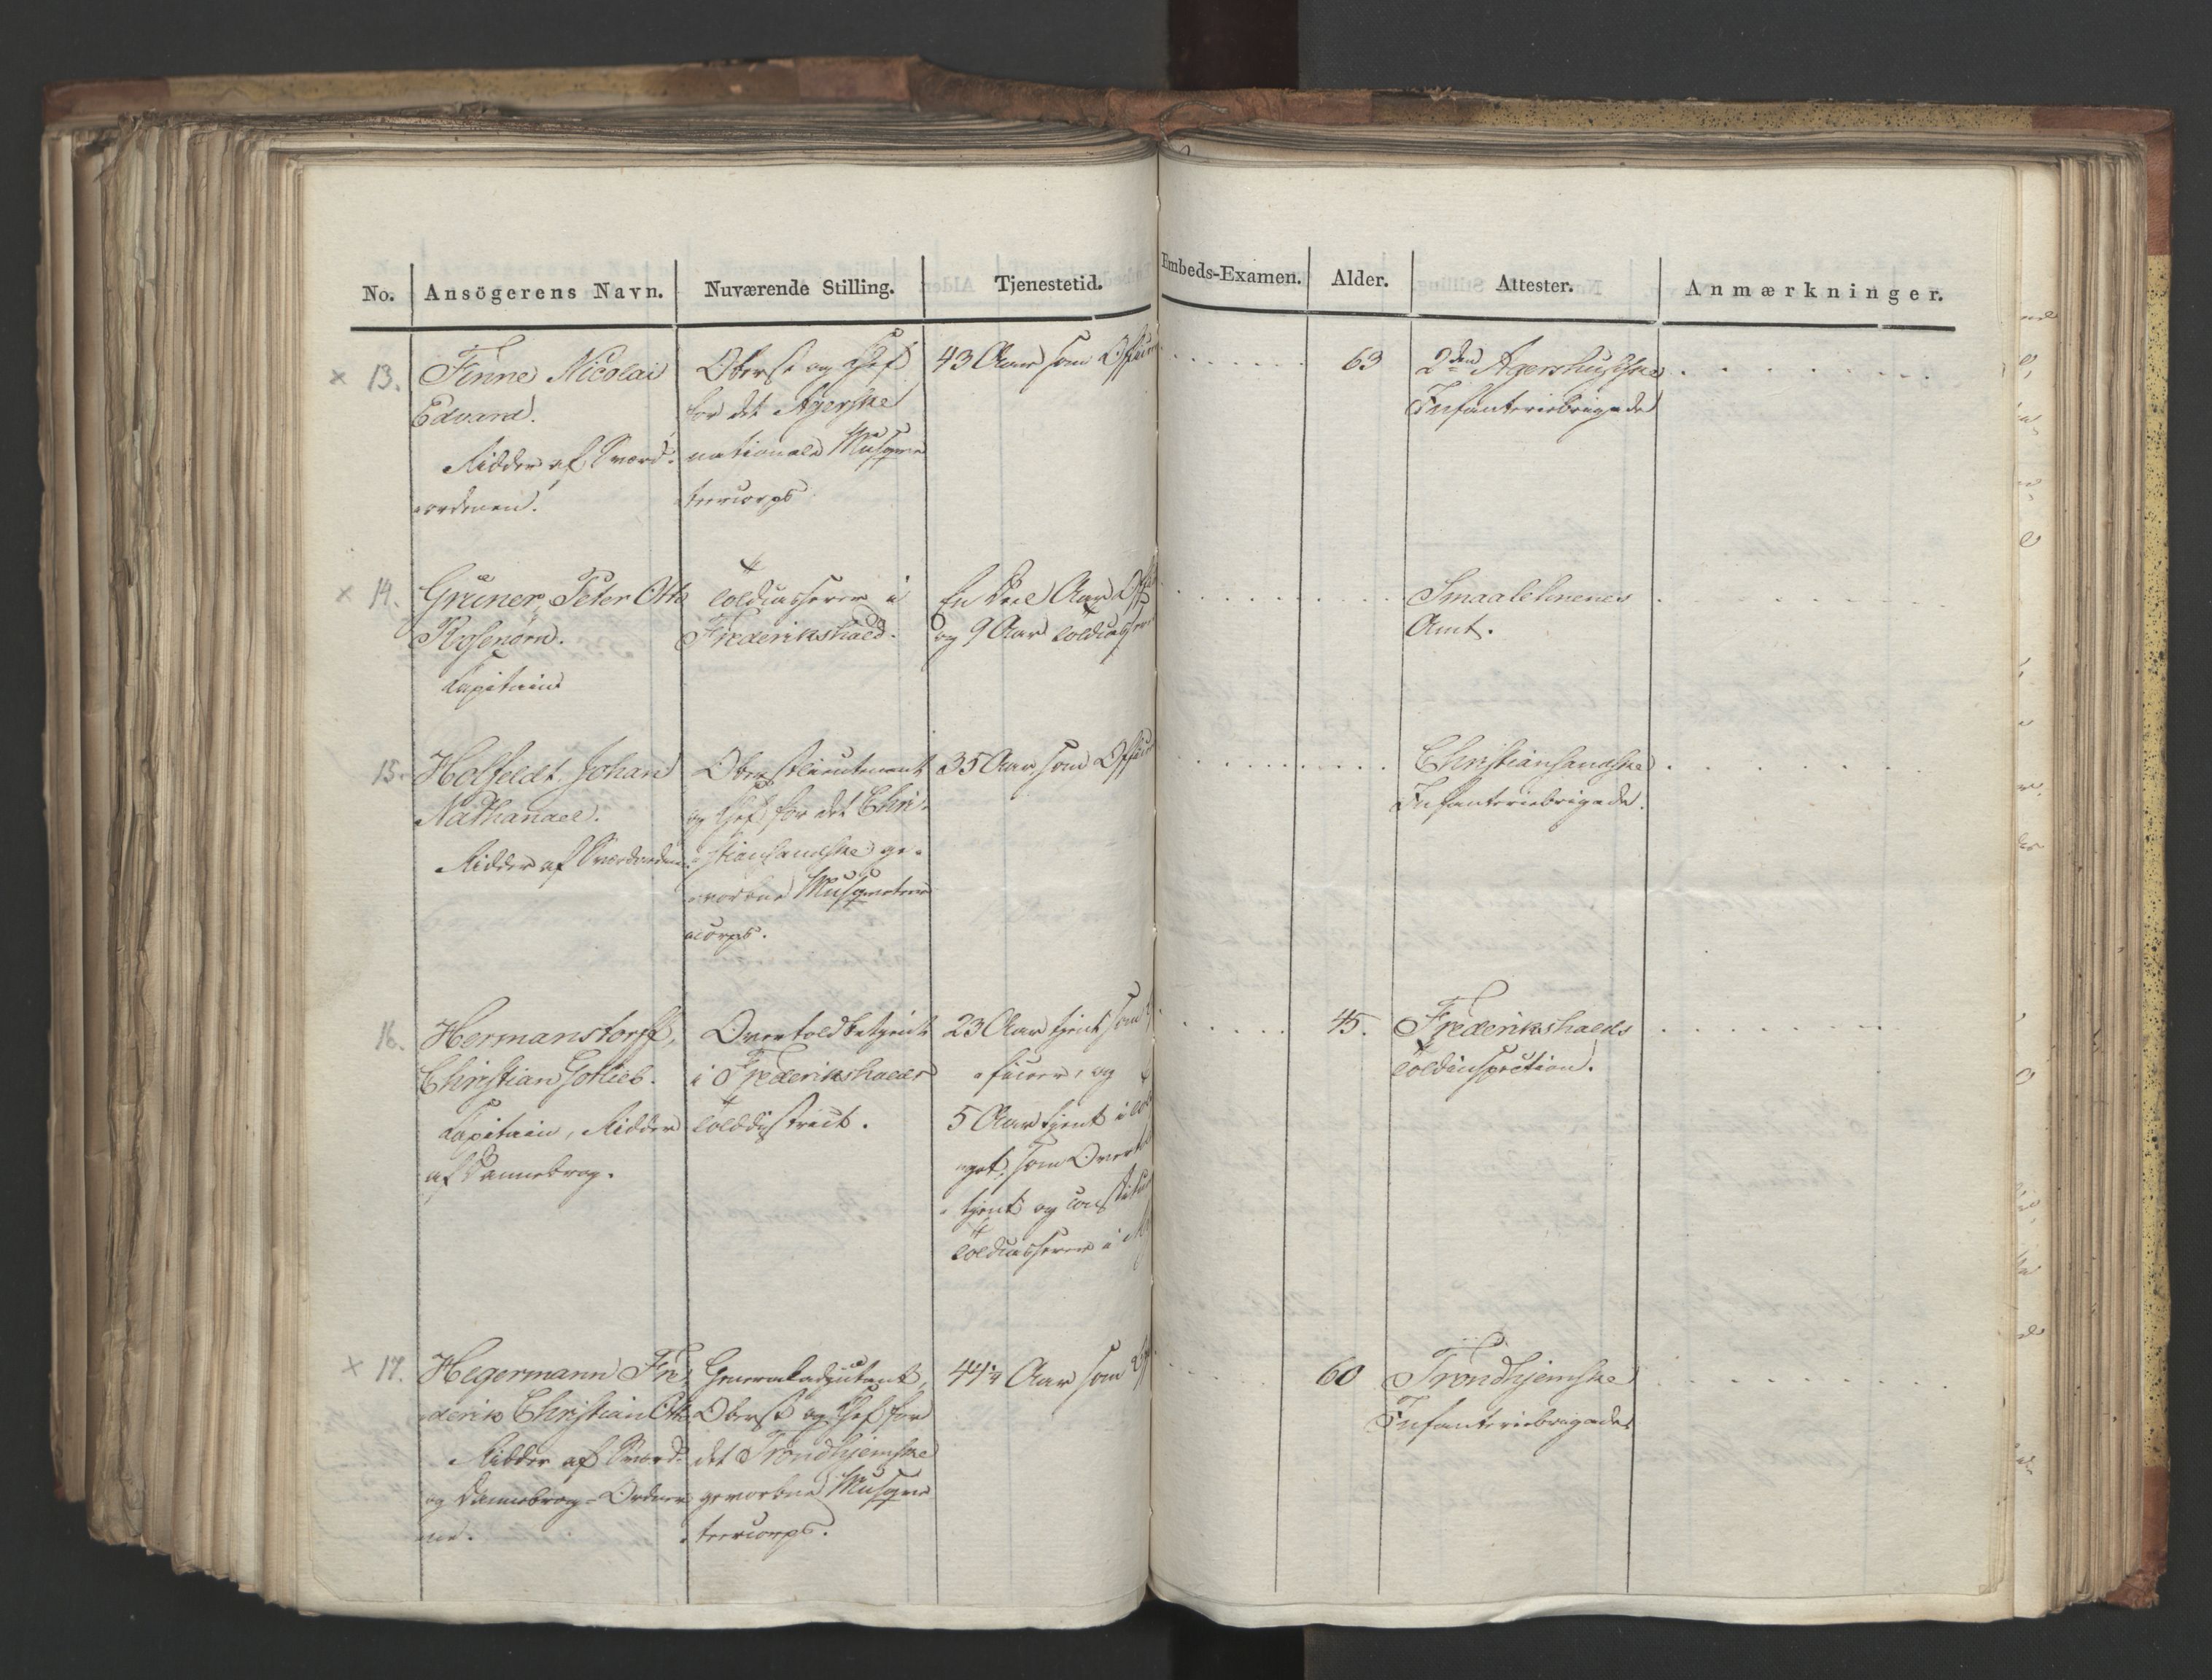 No. Ansögerens Navn. Nuværende Stilling. Tjenestetid. Embeds-Examen. Alder. Attester. Anmærkninger.
× 13. Finne Nicolai
Edvard.
Ridder af Sværd-
ordenen.
Oberst og Chef
for det Agerske
nationale Musque
teercorps
43 Aar som Officier
63
2den Agershusiske
Infanteriebrigade
× 14. Grüner, Peter Otto
Rosenörn.
Capitain
Toldcasserer i
Frederikshald.
En Deel Aar
og 9 Aar Toldcasserer
Smaalehnenes
Amt.
15. Holfeldt, Johan
Nathanael.
Ridder af Sværdorden
Oberstlieutenant
og Chef for det Chri-
stiansandske ge-
vorbne Musqueteer
corps.
35 Aar som Officier
Christiansandske
Infanteriebrigade.
16. Hermanstorff,
Christian Gotlieb.
Capitain, Ridder
af Dannebrog.
Overtoldbetjent
i Frederikshalds
Tolddistrict.
23 Aar tjent som
ficeer, og
5 Aar tjent i
som
tjent og
Toldcasserer i
45.
Frederikshalds
Toldinspection.
× 17. Hegermann Fri-
derik Christian Otto
Ridder af Sværd-
og Dannebrog-Ordner
ne.
Generaladjutant,
Oberst og Chef for
det Trondhjemske
gevorbne Musque
teercorps.
44 1/4 Aar som
60
Trondhjemske
Infanteriebrigade